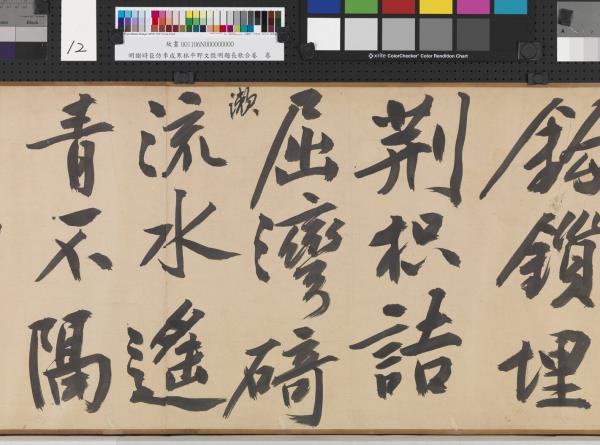 12
故畫 001106N000000000
明謝時臣仿李成寒林平野文徵明楚長歌合卷 卷
x-rite ColorChecker Color Rendition Chart
鈎鎖埋
荊枳詰
屈灣碕
瀨
流水遙
青不隔